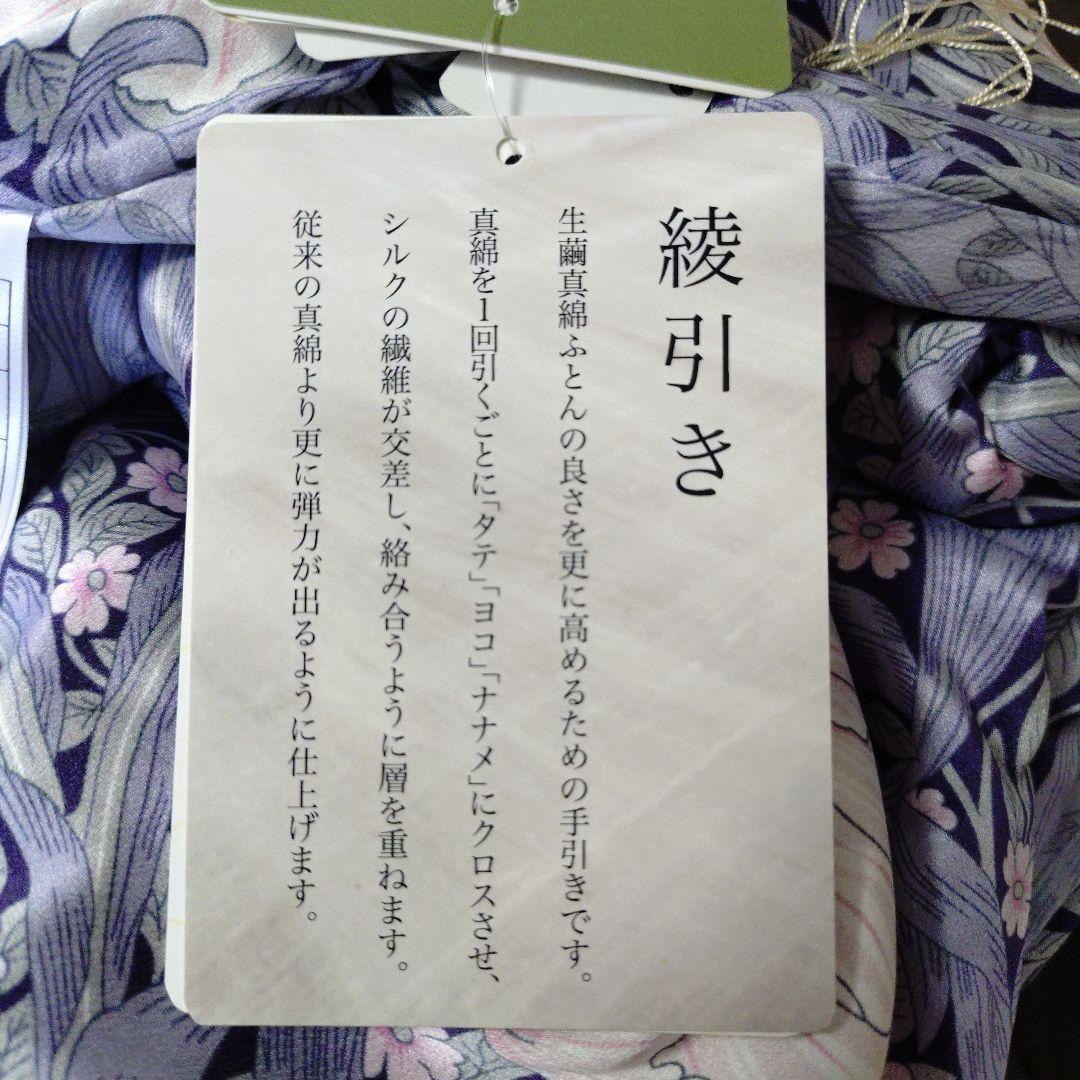 綾引き
生繭真綿ふとんの良さを更に高めるための手引きです。
真綿を1回引くごとに「タテ」「ヨコ」「ナナメ」にクロスさせ、
シルクの繊維が交差し、絡み合うように層を重ねます。
従来の真綿より更に弾力が出るように仕上げます。